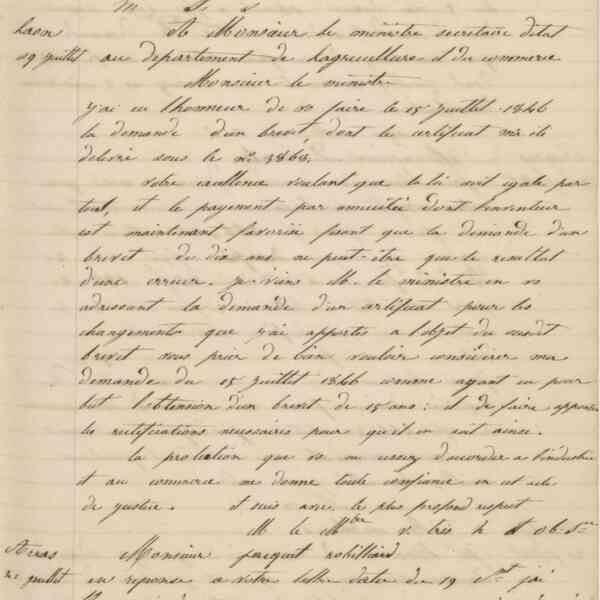 Laon A Monsieur le ministre secretaire d'etat
29 juillet au departement de lagriculture et du commerce
Monsieur le ministre
j'ai eu lhonneur de vs faire le 15 juillet 1846
la demande d'un brevet, dont le certificat m'a ete
delivré sous le no 3868.
votre excellence voulant que la loi soit egale par
tout, et le payement par annuités dont linventeur
est maintenant favorisé fesant que la demande d'un
brevet de dix ans ne peut-être que le resultat
d'une erreur. je viens M. le ministre en vs
adressant la demande d'un certificat pour les
changements que j'ai apportes a l'objet du susdit
brevet vous prier de bien vouloir considérer ma
demande du 15 juillet 1846 comme ayant eu pour
but l'obtension d'un brevet de 15 ans : et de faire apporter
les rectifications necessaires pour qu'il en soit ainsi.
la protection que vs accordez a l'industrie
et au commerce me donne toute confiance en cet acte
de justice. et suis avec le plus profond respect
M le Mtre v. très h et ob. Sr
Arras Monsieur jacquit robilliard
juillet en reponse a votre lettre datée du 19 Ct j'ai